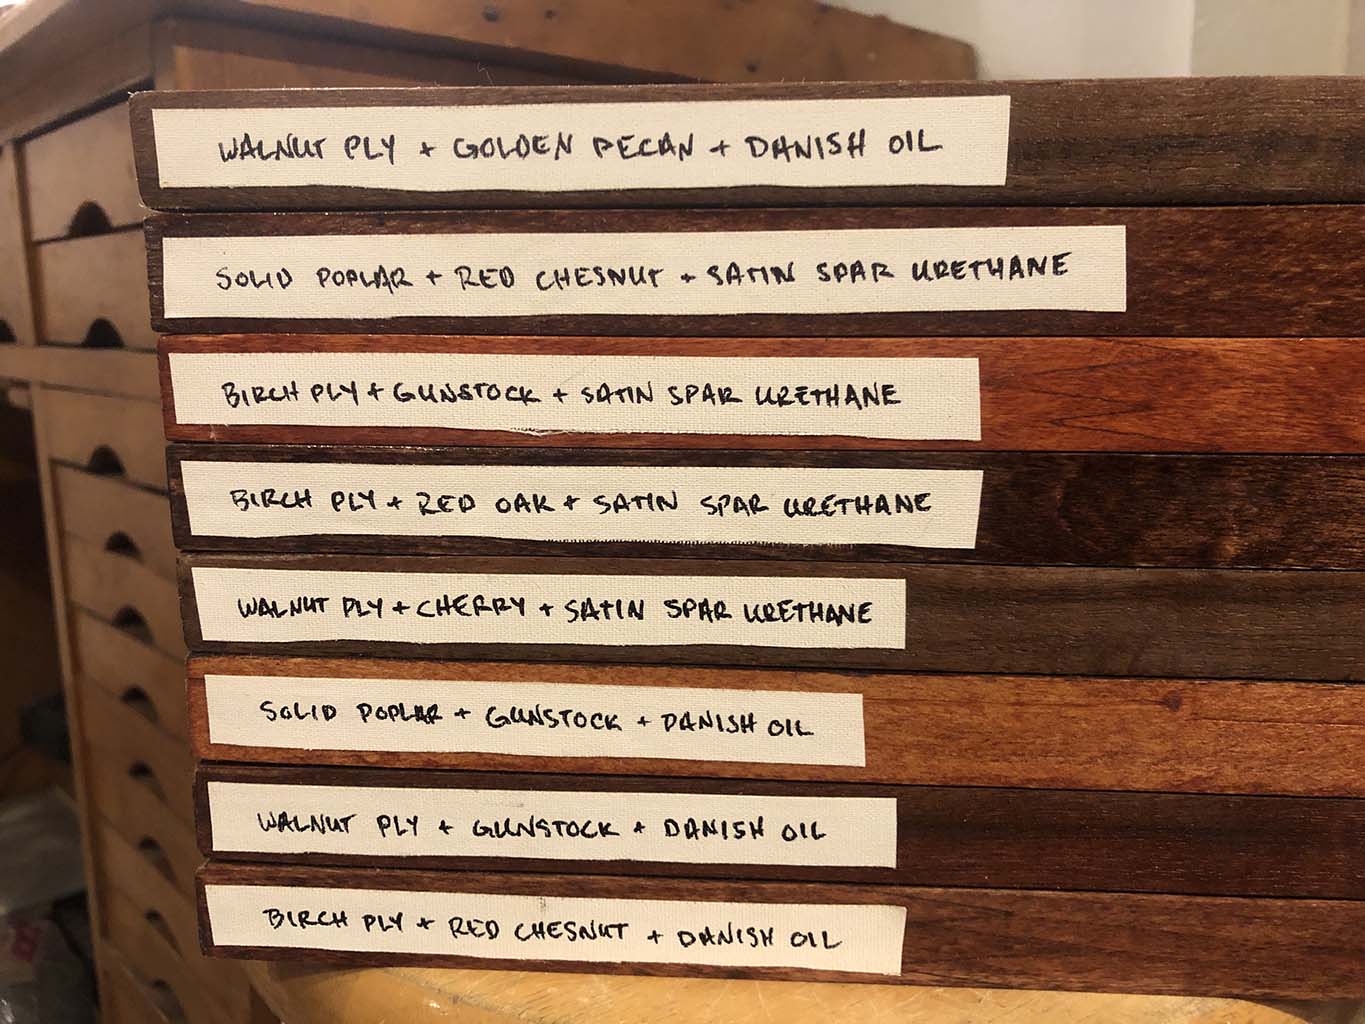 WALNUT PLY + GOLDEN PECAN + DANISH OIL
SOLID POPLAR + RED CHESNUT + SATIN SPAR URETHANE
BIRCH PLY + GUNSTOCK + SATIN SPAR URETHANE
BIRCH PLY + RED OAK + SATIN SPAR URETHANE
WALNUT PLY + CHERRY + SATIN SPAR URETHANE
SOLID POPLAR + GUNSTOCK + DANISH OIL
WALNUT PLY + GUNSTOCK + DANISH OIL
BIRCH PLY + RED CHESNUT + DANISH OIL